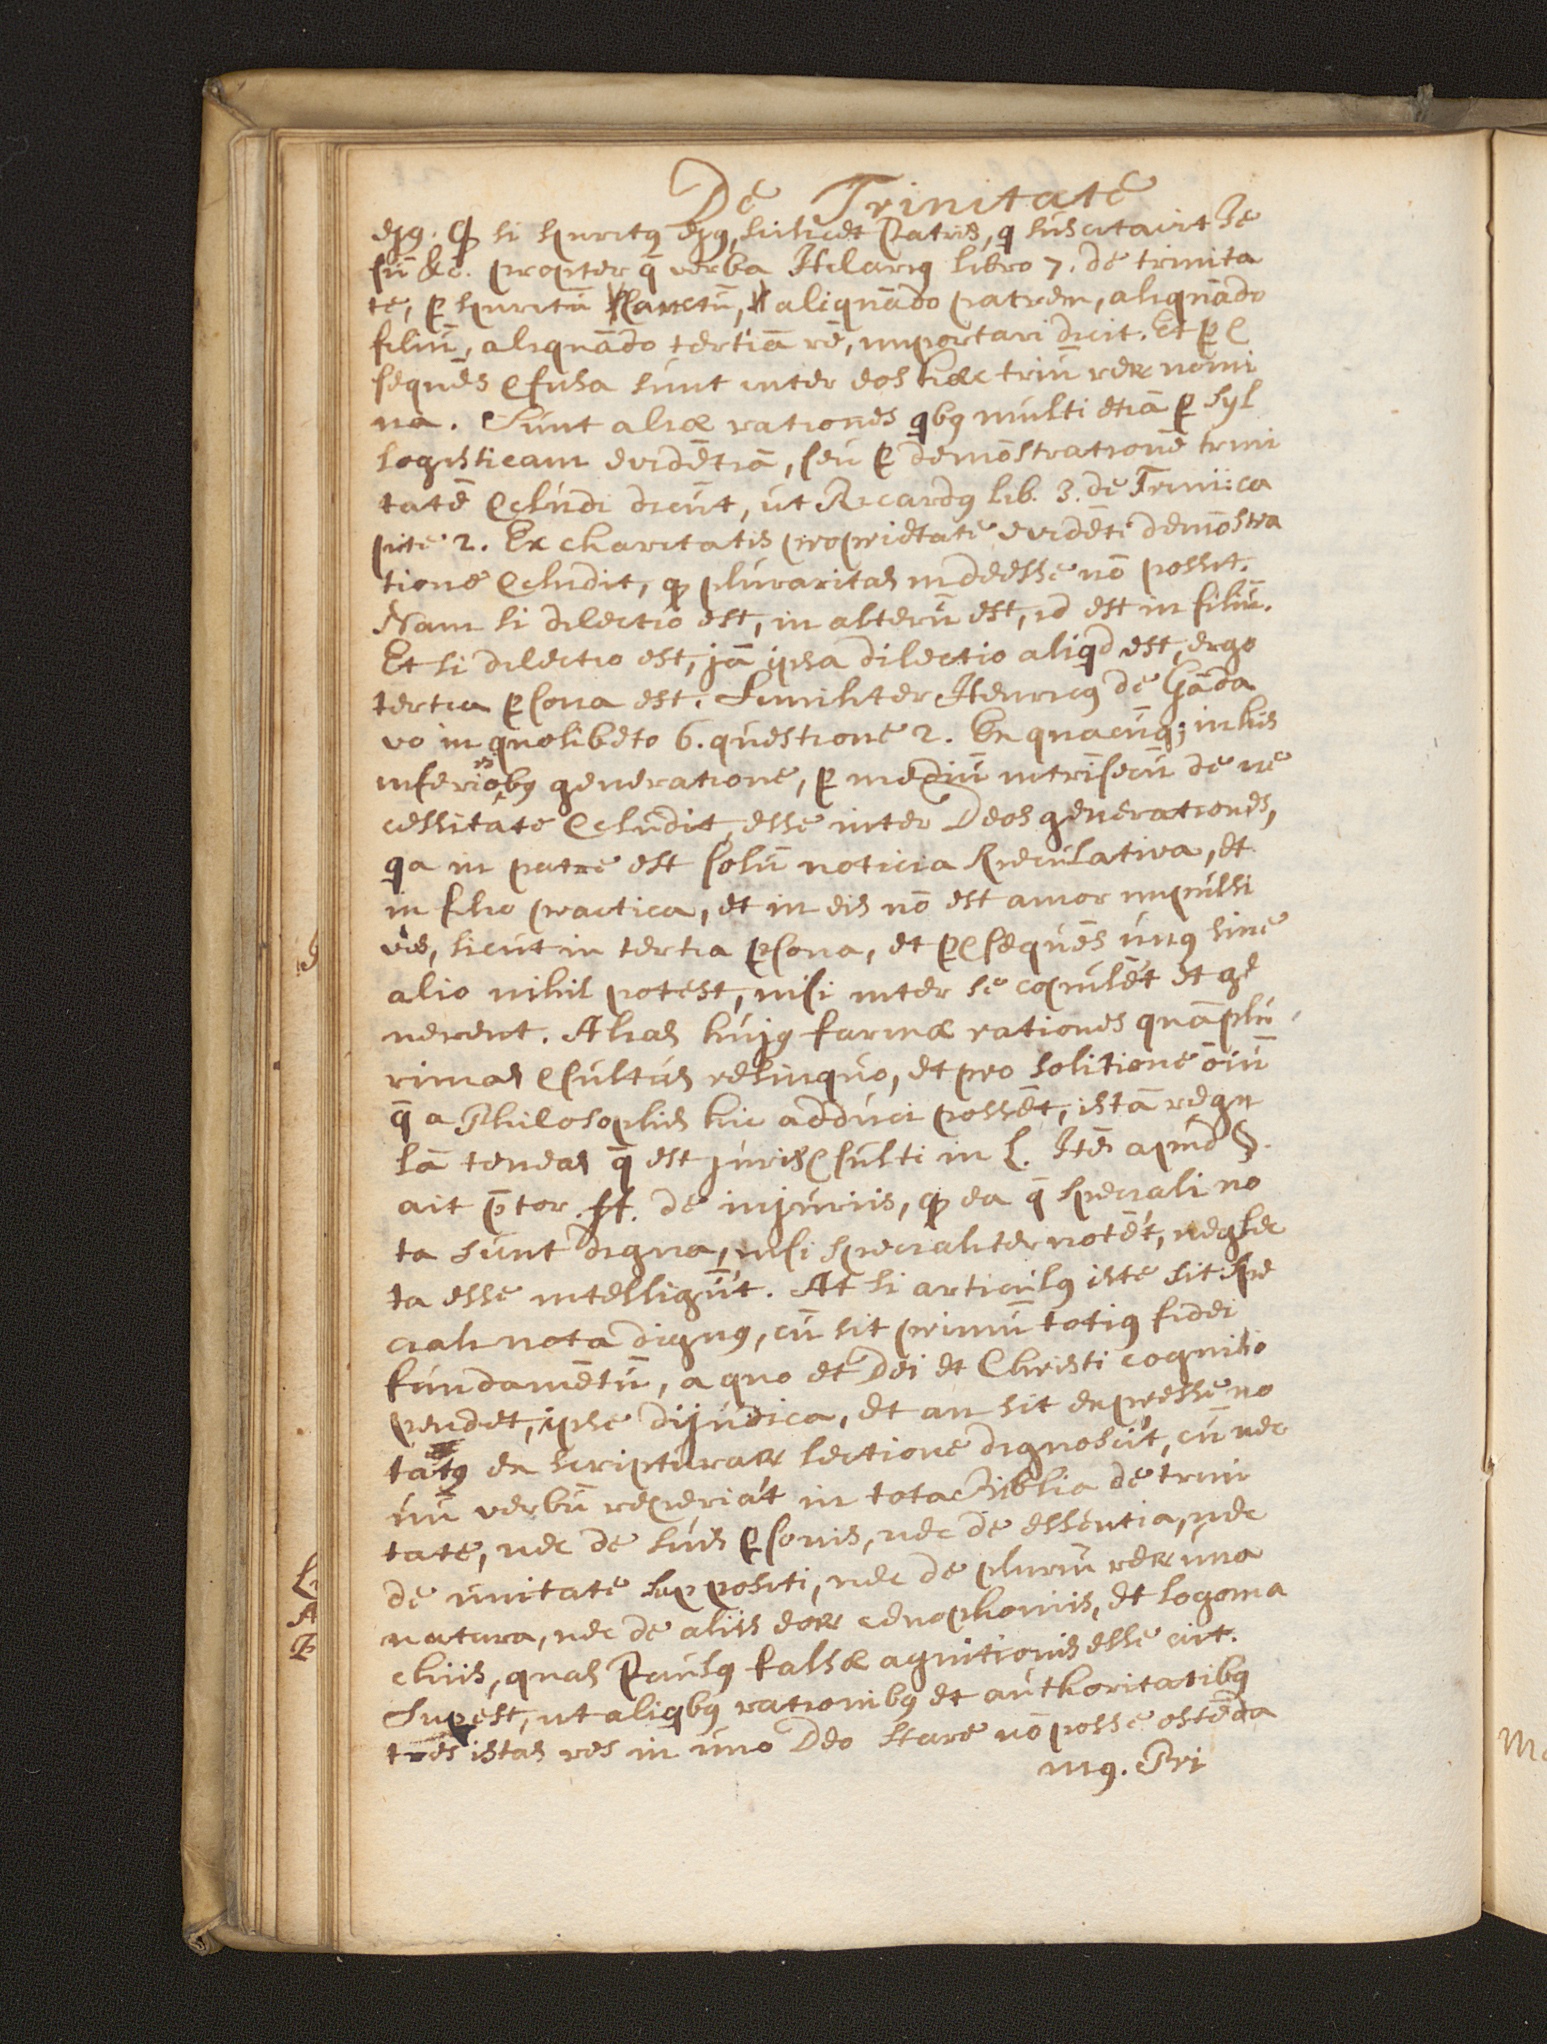 De Trinitate
ejꝰ. Qꝫ si spiritꝰ ejꝰ, scilicet Patris, q suscitavit Je
sū &c. propter q̄ verba Hilariꝰ libro 7. de trinita
te, ꝑ spiritū sanctū, aliquādo patrem, aliquādo
filiū, aliquādo tertiā rē, importari dicit. Et ꝑ ꝯ
sequēs ꝯfusa sunt inter eos haec triū reꝝ nomi
na. Sunt aliæ rationes qbꝰ multi etiā ꝑ syl
logisticam evidētiā, seu ꝑ demōstrationē trini
tatē ꝯcludi dicūt, ut Ricardꝰ lib. 3. de Trini: ca
pite 2. Ex charitatis proprietate evidēti demōstra
tione ꝯcludit, qꝫ pluraritas indeesse nō possit.
Nam si dilectio est, in alterū est, id est in filiū.
Et si dilectio est, jā ipsa dilectio aliqd est, ergo
tertia ꝑsona est. Similiter Henricꝰ de Gāda
vo in quolibeto 6. questione 2. Ex quacūq; in his
inferioribꝰ generatione, ꝑ mediū intrīsecū de ne
cessitate ꝯcludit, esse inter Deos generationes,
qa in patre est solū noticia speculativa, et
in filio practica, et in eis nō est amor impulsi
vꝰ, sicut in tertia ꝑsona, et ꝑ ꝯsequēs unꝰ sine
alio nihil potest, nisi inter se copulēt et ge
nerent. Alias hujꝰ farinæ rationes quāplu
rimas ꝯsultus relinquo, et pro solitione oīū
q̄ a Philosophis hic adduci possēt, istā regu
lā teneas q̄ est jurisꝯsulti in L. Itē apud §.
ait p̄tor. ff. de injuriis, qꝫ ea q̄ speciali no
ta sunt digna, nisi specialiter notēt, neglec
ta esse intelligūt. At si articulꝰ iste sit spe
ciali nota dignꝰ, cū sit primū totiꝰ fidei
fundamētū, a quo et Dei et Christi cognitio
pendet, ipse dijudica, et an sit expresse no
tatꝰ ex scripturaꝝ lectione dignoscit, cū nec
unū verbū reperiat in tota Biblia de trini
tate, nec de suis ꝑsonis, nec de essentia, nec
de unitate suppositi, nec de pluriū reꝝ una
natura, nec de aliis eoꝝ cenophoniis, et logoma
chiis, quas Paulꝰ falsæ agnitionis esse ait.
Supest, ut aliqbꝰ rationibꝰ et authoritatibꝰ
tres istas res in uno Deo stare nō posse ostēda
mꝰ. Pri